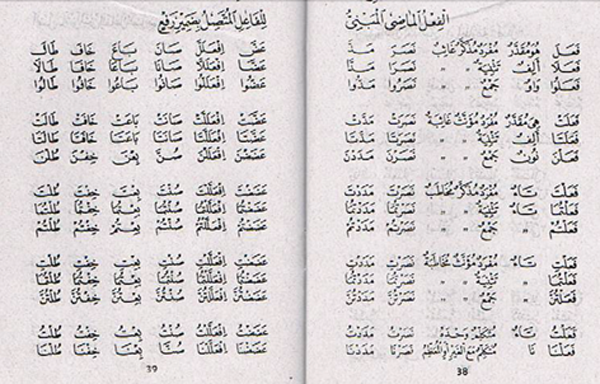 الفِعْلُ المَاضِى المَبْنِىُّ
فَعَلَ هُوَ مُقَدَّرٌ مُفْرَدٌ مُذَكَّرٌ غَائِبٌ نَصَرَ مَدَّ
فَعَلَا أَلِفٌ تَثْنِيَةٌ " " نَصَرَا مَدَّا
فَعَلُوا وَاوٌ جَمْعٌ " " نَصَرُوا مَدُّوا
فَعَلَتْ هِىَ مُقَدَّرٌ مُفْرَدٌ مُؤَنَّثٌ غَائِبَةٌ نَصَرَتْ مَدَّتْ
فَعَلَتَا أَلِفٌ تَثْنِيَةٌ " " نَصَرَتَا مَدَّتَا
فَعَلْنَ نُونٌ جَمْعٌ " " نَصَرْنَ مَدَدْنَ
فَعَلْتَ تَاءٌ مُفْرَدٌ مُذَكَّرٌ مُخَاطَبٌ نَصَرْتَ مَدَدْتَ
فَعَلْتُمَا تَاءٌ تَثْنِيَةٌ " " نَصَرْتُمَا مَدَدْتُمَا
فَعَلْتُمْ " جَمْعٌ " " نَصَرْتُمْ مَدَدْتُمْ
فَعَلْتِ تَاءٌ مُفْرَدٌ مُؤَنَّثٌ مُخَاطَبَةٌ نَصَرْتِ مَدَدْتِ
فَعَلْتُمَا " تَثْنِيَةٌ " " نَصَرْتُمَا مَدَدْتُمَا
فَعَلْتُنَّ " جَمْعٌ " " نَصَرْتُنَّ مَدَدْتُنَّ
فَعَلْتُ تَاءٌ مُتَكَلِّمٌ وَحْدَهُ نَصَرْتُ مَدَدْتُ
فَعَلْنَا نَا مُتَكَلِّمٌ مَعَ الغَيْرِ أَوِ المُعَظِّمُ نَصَرْنَا مَدَدْنَا
38
لِلْفَاعِلِ المُتَّصِلُ بِضَمِيْرِ رَفْعٍ
عَضَّ اِفْعَلَلَّ صَانَ بَاعَ خَافَ طَالَ
عَضَّا اِفْعَلَلَّا صَانَا بَاعَا خَافَا طَالَا
عَضُّوا اِفْعَلَلُّوا صَانُوا بَاعُوا خَافُوا طَالُوا
عَضَّتْ اِفْعَلَلَّتْ صَانَتْ بَاعَتْ خَافَتْ طَالَتْ
عَضَّتَا اِفْعَلَلَّتَا صَانَتَا بَاعَتَا خَافَتَا طَالَتَا
عَضَضْنَ اِفْعَلَلْنَ صُنَّ بِعْنَ خِفْنَ طُلْنَ
عَضَضْتَ اِفْعَلَلْتَ صُنْتَ بِعْتَ خِفْتَ طُلْتَ
عَضَضْتُمَا اِفْعَلَلْتُمَا صُنْتُمَا بِعْتُمَا خِفْتُمَا طُلْتُمَا
عَضَضْتُمْ اِفْعَلَلْتُمْ صُنْتُمْ بِعْتُمْ خِفْتُمْ طُلْتُمْ
عَضَضْتِ اِفْعَلَلْتِ صُنْتِ بِعْتِ خِفْتِ طُلْتِ
عَضَضْتُمَا اِفْعَلَلْتُمَا صُنْتُمَا بِعْتُمَا خِفْتُمَا طُلْتُمَا
عَضَضْتُنَّ اِفْعَلَلْتُنَّ صُنْتُنَّ بِعْتُنَّ خِفْتُنَّ طُلْتُنَّ
عَضَضْتُ اِفْعَلَلْتُ صُنْتُ بِعْتُ خِفْتُ طُلْتُ
عَضَضْنَا اِفْعَلَلْنَا صُنَّا بِعْنَا خِفْنَا طُلْنَا
39